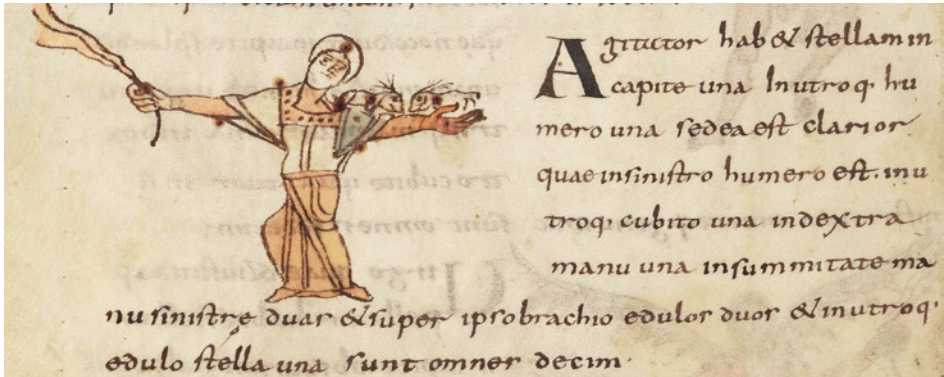 Agitator hab& stellam in
capite una In utroq; hu
mero una sed ea est clarior
quae in sinistro humero est. in u
troq; cubito una in dextra
manu una in summitate ma
nu sinistre duas & super ipso brachio edulos duos & in utroq;
edulo stella una sunt omnes decim·